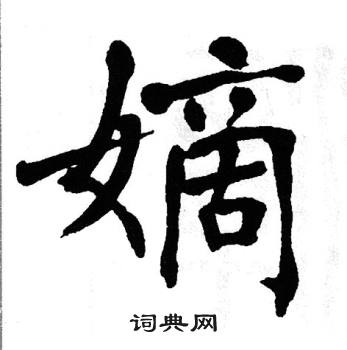 嫡
词典网